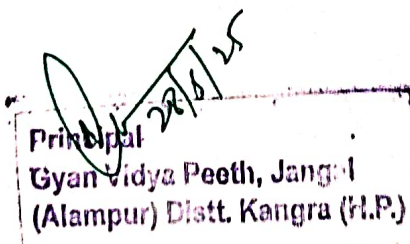 28/6/25
Principal
Gyan Vidya Peeth, Jangal
(Alampur) Distt. Kangra (H.P.)